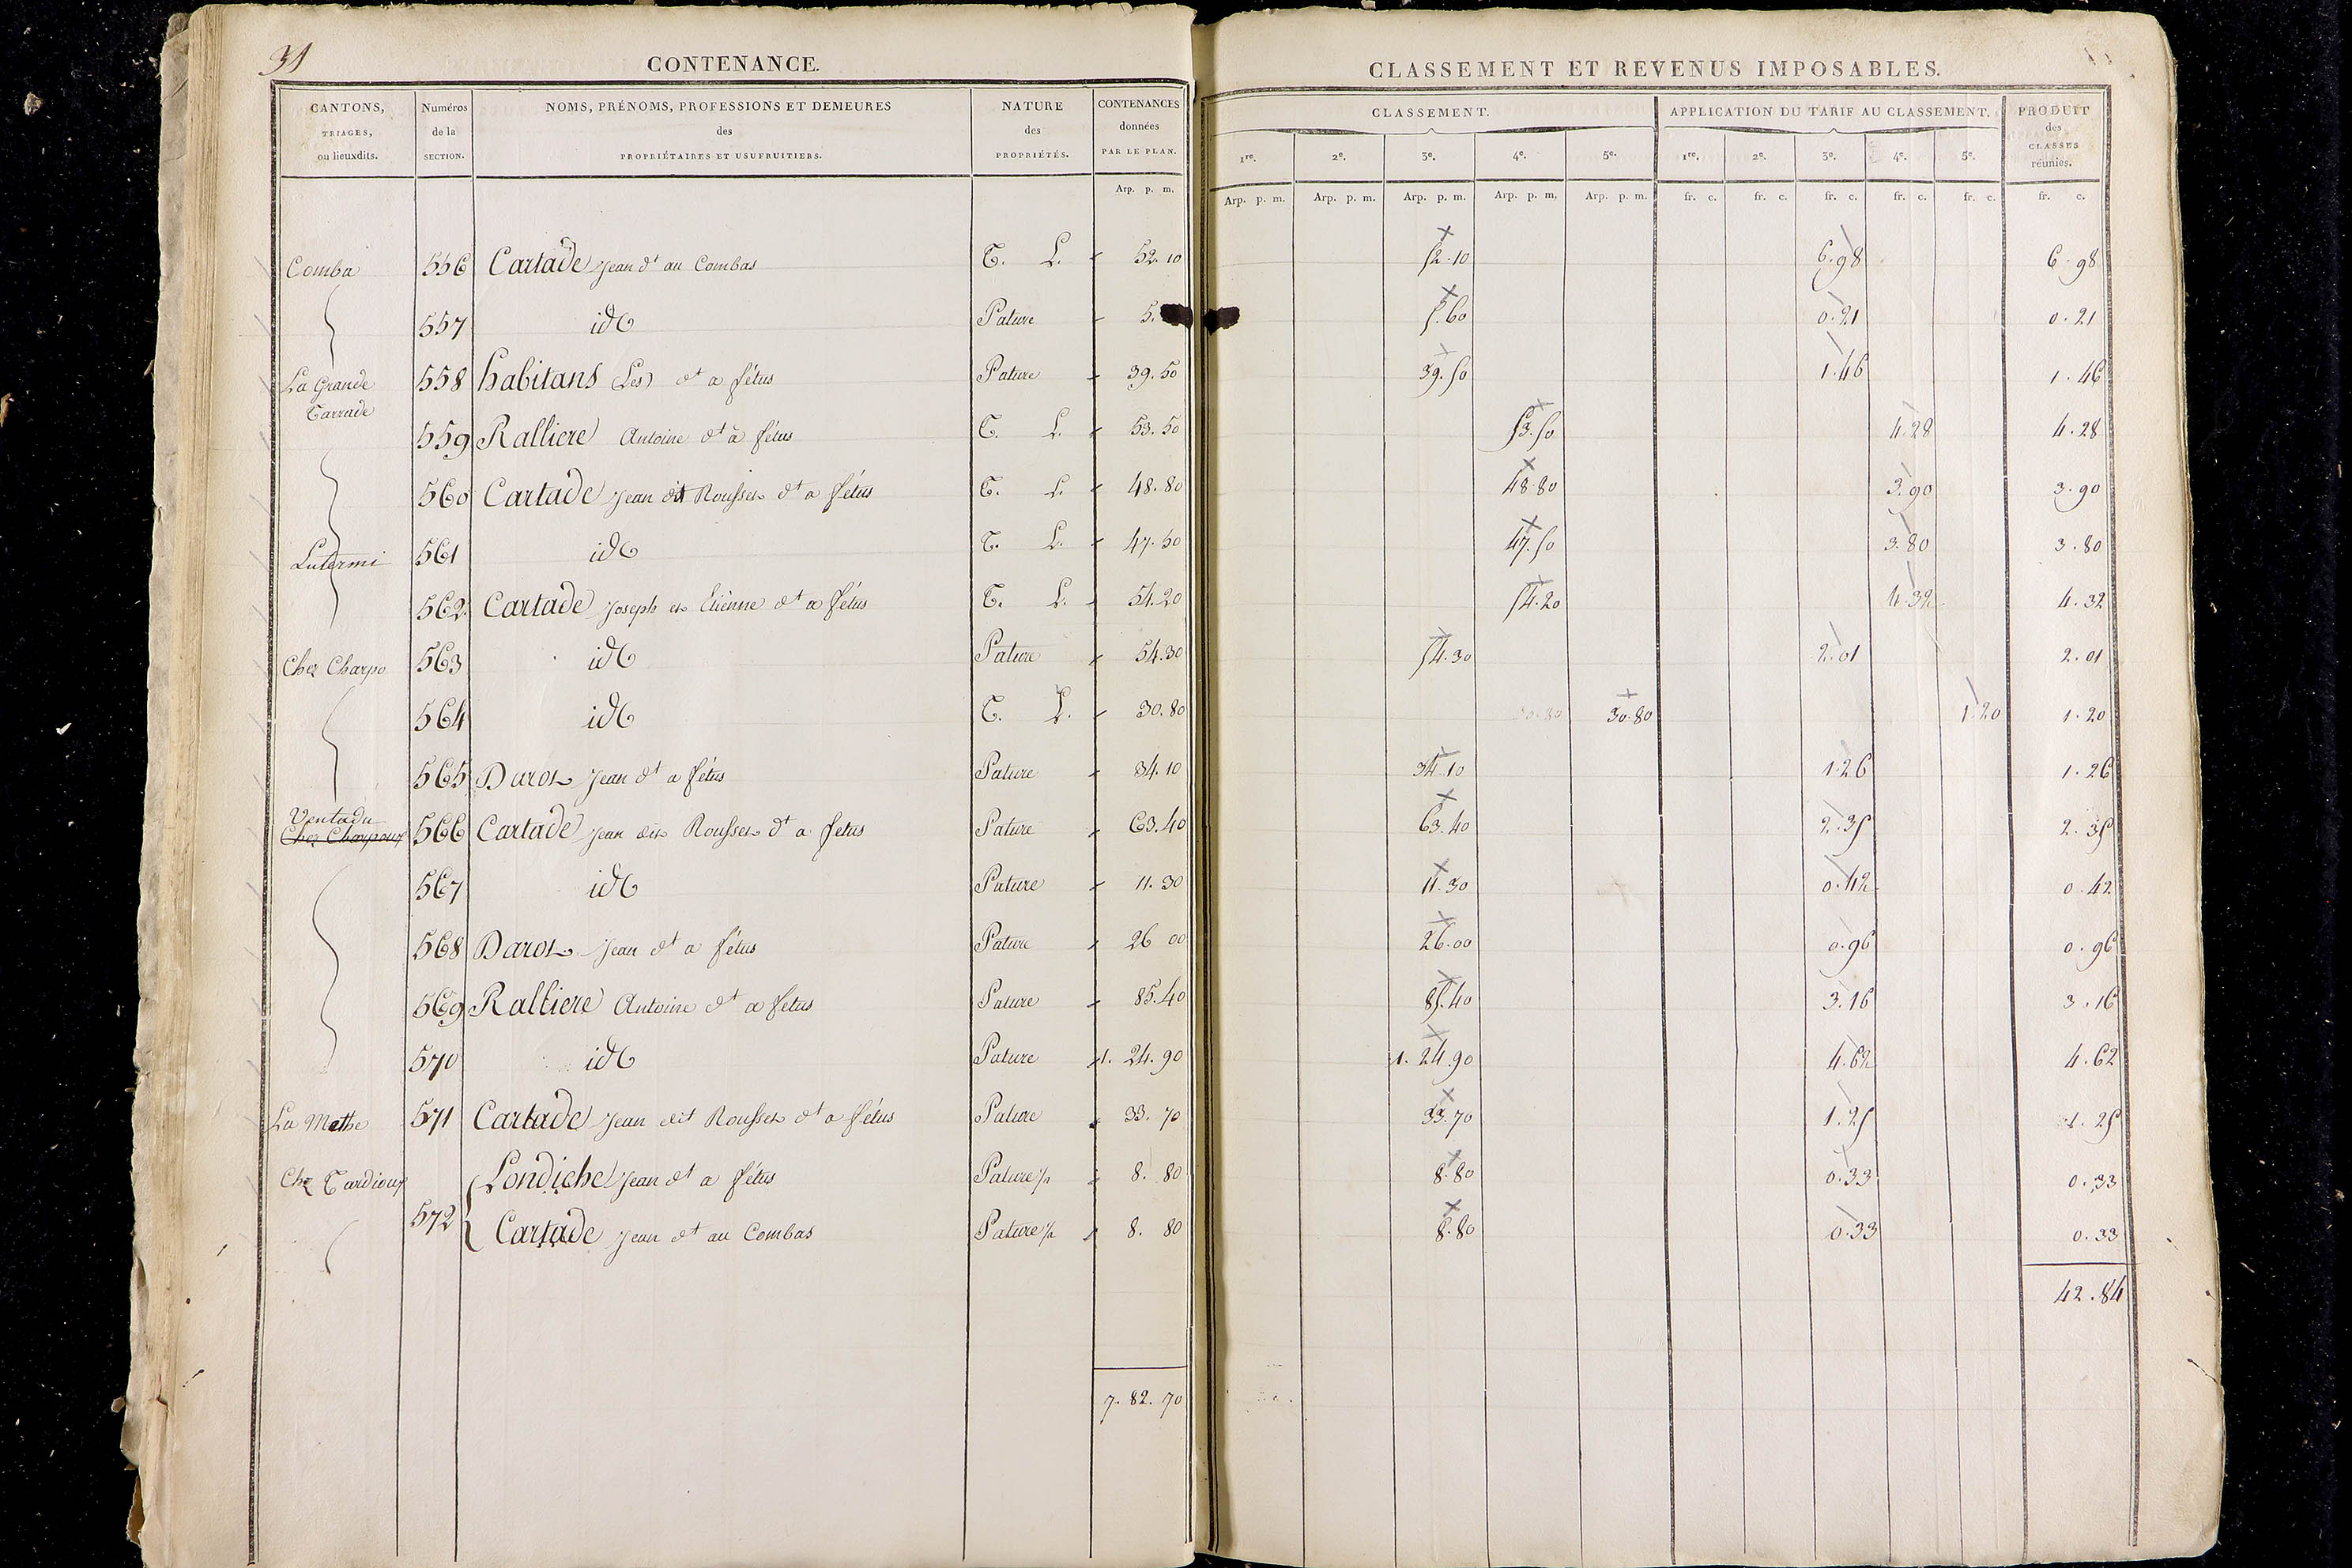 31
CONTENANCE.
CANTONS, TRIAGES, ou lieuxdits.
Numéros de la SECTION.
NOMS, PRÉNOMS, PROFESSIONS ET DEMEURES des PROPRIÉTAIRES ET USUFRUITIERS.
NATURE des PROPRIÉTÉS.
CONTENANCES données PAR LE PLAN.
Arp. p. m.
CLASSEMENT ET REVENUS IMPOSABLES.
CLASSEMENT.
APPLICATION DU TARIF AU CLASSEMENT.
PRODUIT des CLASSES réunies.
1re. 2e. 3e. 4e. 5e. 1re. 2e. 3e. 4e. 5e.
Arp. p. m. Arp. p. m. Arp. p. m. Arp. p. m. Arp. p. m. fr. c. fr. c. fr. c. fr. c. fr. c. fr. c.
Comba 556 Cartade Jean dt au Combas T. L. 52.10 52.10 6.98 6.98
557 id Pature 5. 5.60 0.21 0.21
La Grande Tarrade 558 habitans (Les) dt a fétus Pature 39.50 39.50 1.46 1.46
559 Ralliere Antoine dt à fétus T. L. 53.50 53.50 4.28 4.28
560 Cartade Jean dit Rousset dt a fétus T. L. 48.80 48.80 3.90 3.90
Lutermi 561 id T. L. 47.50 47.50 3.80 3.80
562 Cartade Joseph et Etienne dt a fétus T. L. 54.20 54.20 4.32 4.32
Chez Charpo 563 id Pature 54.30 54.30 2.01 2.01
564 id T. L. 30.80 30.80 30.80 1.20 1.20
565 Darot Jean dt a fétus Pature 34.10 34.10 1.26 1.26
Ventadu
Chez Charpoux 566 Cartade Jean dit Rousset dt a fetus Pature 63.40 63.40 2.35 2.35
567 id Pature 11.30 11.30 0.42 0.42
568 Darot Jean dt a fétus Pature 26 00 26.00 0.96 0.96
569 Ralliere Antoine dt a fetus Pature 85.40 85.40 3.16 3.16
570 id Pature 1. 24.90 1. 24.90 4.62 4.62
La Mothe 571 Cartade Jean dit Rousset dt a fétus Pature 33. 70 33.70 1.25 1.25
Chez Tardioux 572 Londiche Jean dt a fétus Pature ½ 8. 80 8.80 0.33 0.33
Cartade Jean dt au Combas Pature ½ 8. 80 8.80 0.33 0.33
42.84
7. 82. 70